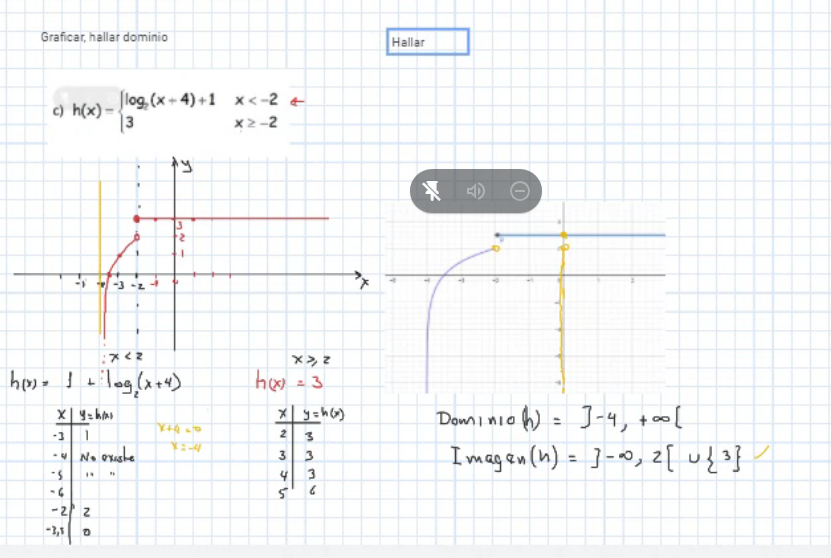 Graficar, hallar dominio
Hallar
c) h(x) = {log₂(x + 4) + 1   x < -2
3   x ≥ -2
y
3
2
1
-3 -2
x
x < 2
x ⩾ 2
h(x) = 1 + log₂(x+4)
h(x) = 3
x | y = h(x)
-3 | 1
-4 | No existe
-5 | " "
-6
-2 | 2
-3,5 | 0
x+4=0
x=-4
x | y = h(x)
2 | 3
3 | 3
4 | 3
5 | 6
Dominio(h) = ]-4, +∞[
Imagen(h) = ]-∞, 2[ ∪ {3}